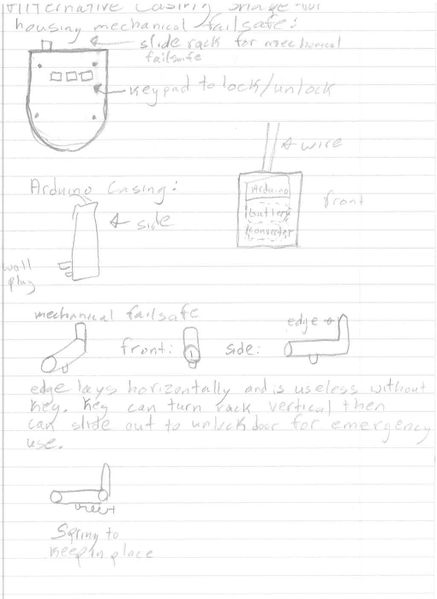 Alternative Casing
housing mechanical failsafe:
slide rack for mechanical
failsafe
keypad to lock/unlock
wire
Arduino Casing:
side
Arduino
Battery
Converter
front
wall
plug
mechanical failsafe
front:
side:
edge
edge lays horizontally and is useless without
key. Key can turn rack vertical then
can slide out to unlock door for emergency
use.
Spring to
keep in place